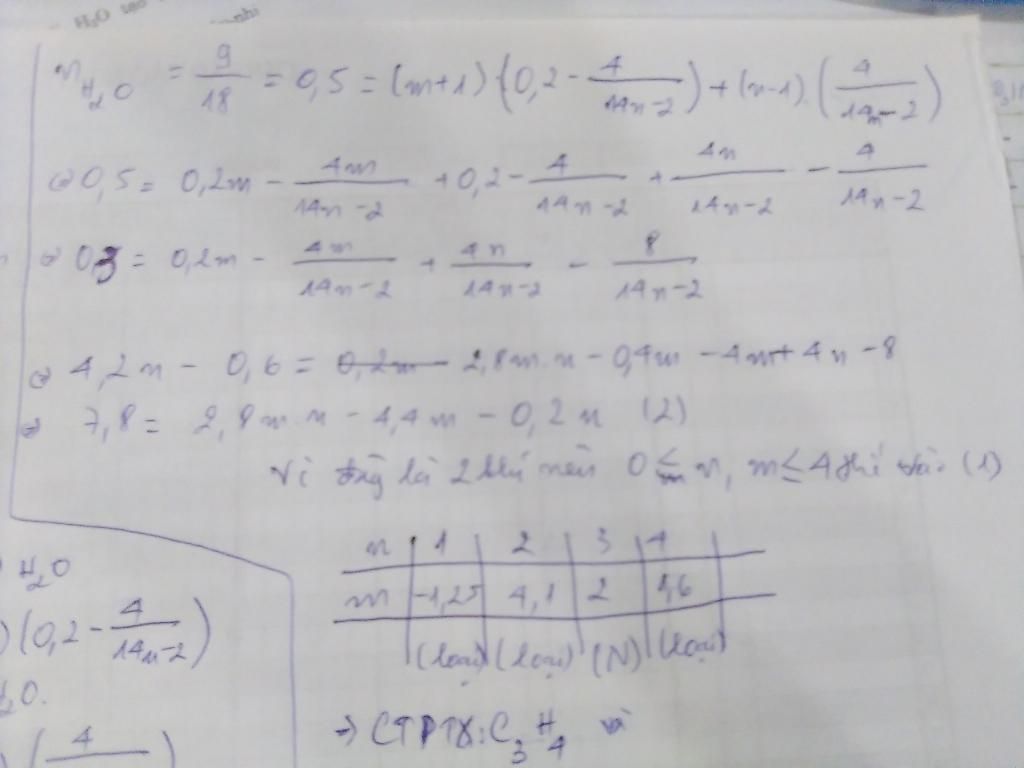 H₂O sao
nhi
n_H₂O = 9/18 = 0,5 = (m+1)(0,2 - 4/(14n-2)) + (n-1).(4/(14n-2))
⇔ 0,5 = 0,2m - 4m/(14n-2) + 0,2 - 4/(14n-2) + 4n/(14n-2) - 4/(14n-2)
⇔ 0,3 = 0,2m - 4m/(14n-2) + 4n/(14n-2) - 8/(14n-2)
⇔ 4,2n - 0,6 = 2,8m.n - 0,4m - 4m + 4n - 8
⇔ 7,8 = 2,8m.n - 4,4m - 0,2n (2)
Vì là 2 khí nên 0 ≤ n, m ≤ 4 (1)
n | 1 | 2 | 3 | 4
m | -1,25 | 4,1 | 2 | 1,6
(loại) (loại) (N) (loại)
→ CTPTX: C₃H₄ và
H₂O
)(0,2 - 4/(14n-2))
H₂O.
)(4